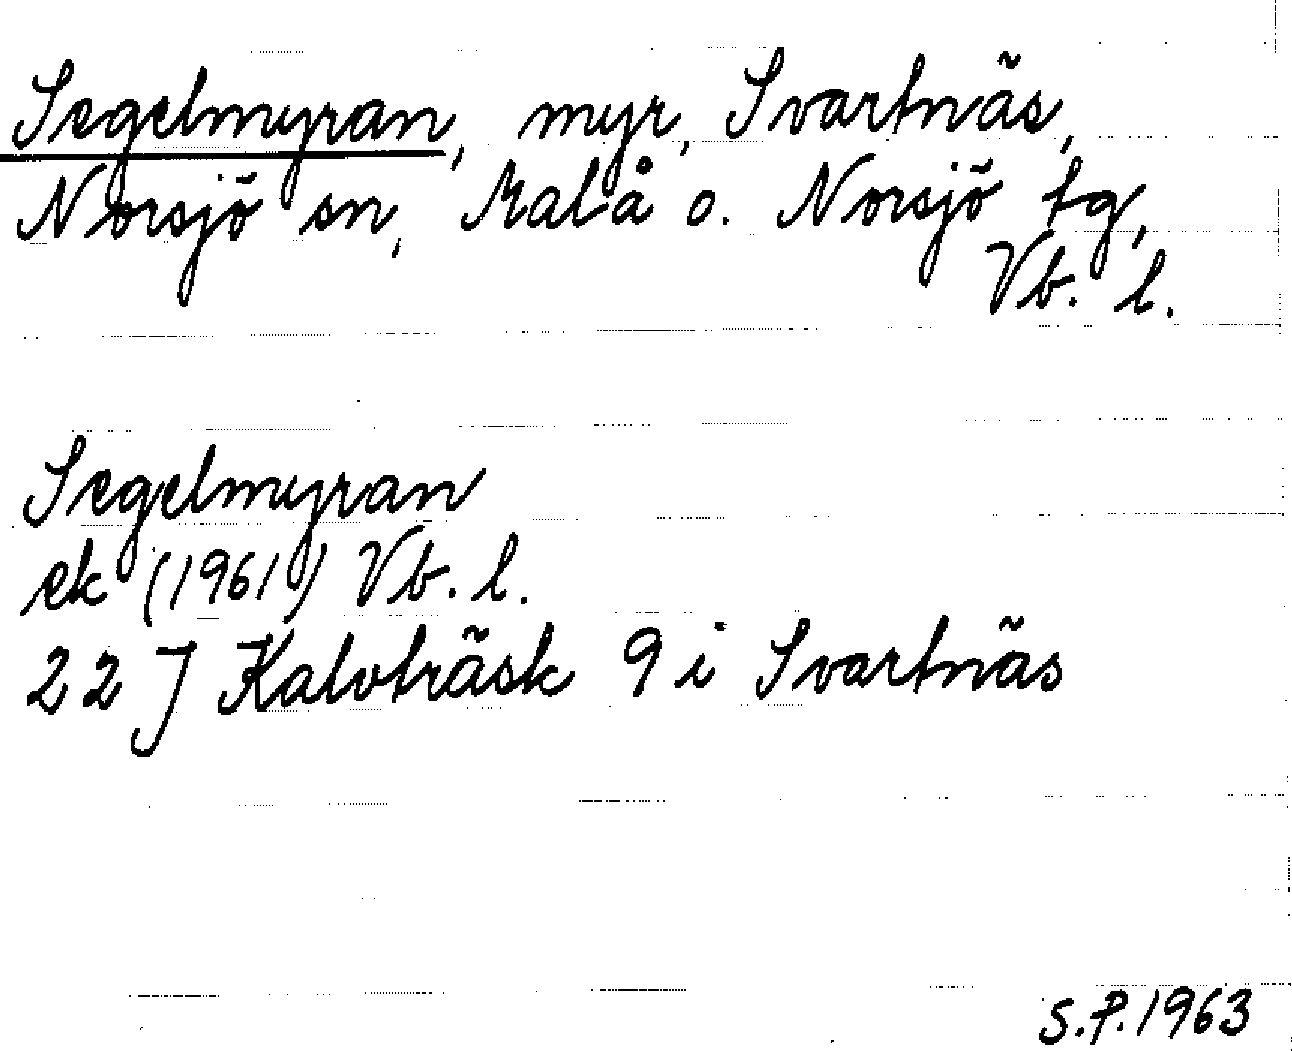 Segelmyran, myr, Svartnäs,
Norsjö sn, Malå o. Norsjö tg,
Vb. l.
Segelmyran
ek (1961) Vb. l.
22 J Kalvträsk 9 i Svartnäs
S.P. 1963